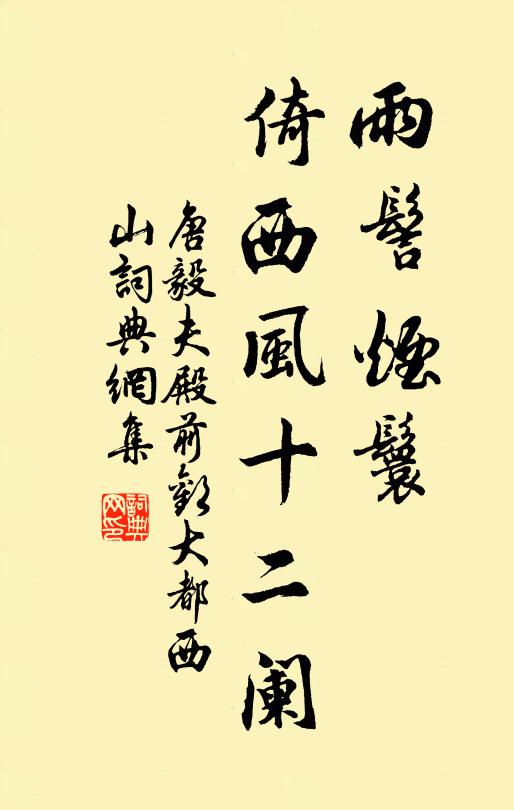 雨髻煙鬟
倚西風十二闌
唐毅夫殿前歡大都西
山詞典網集
詞典網印